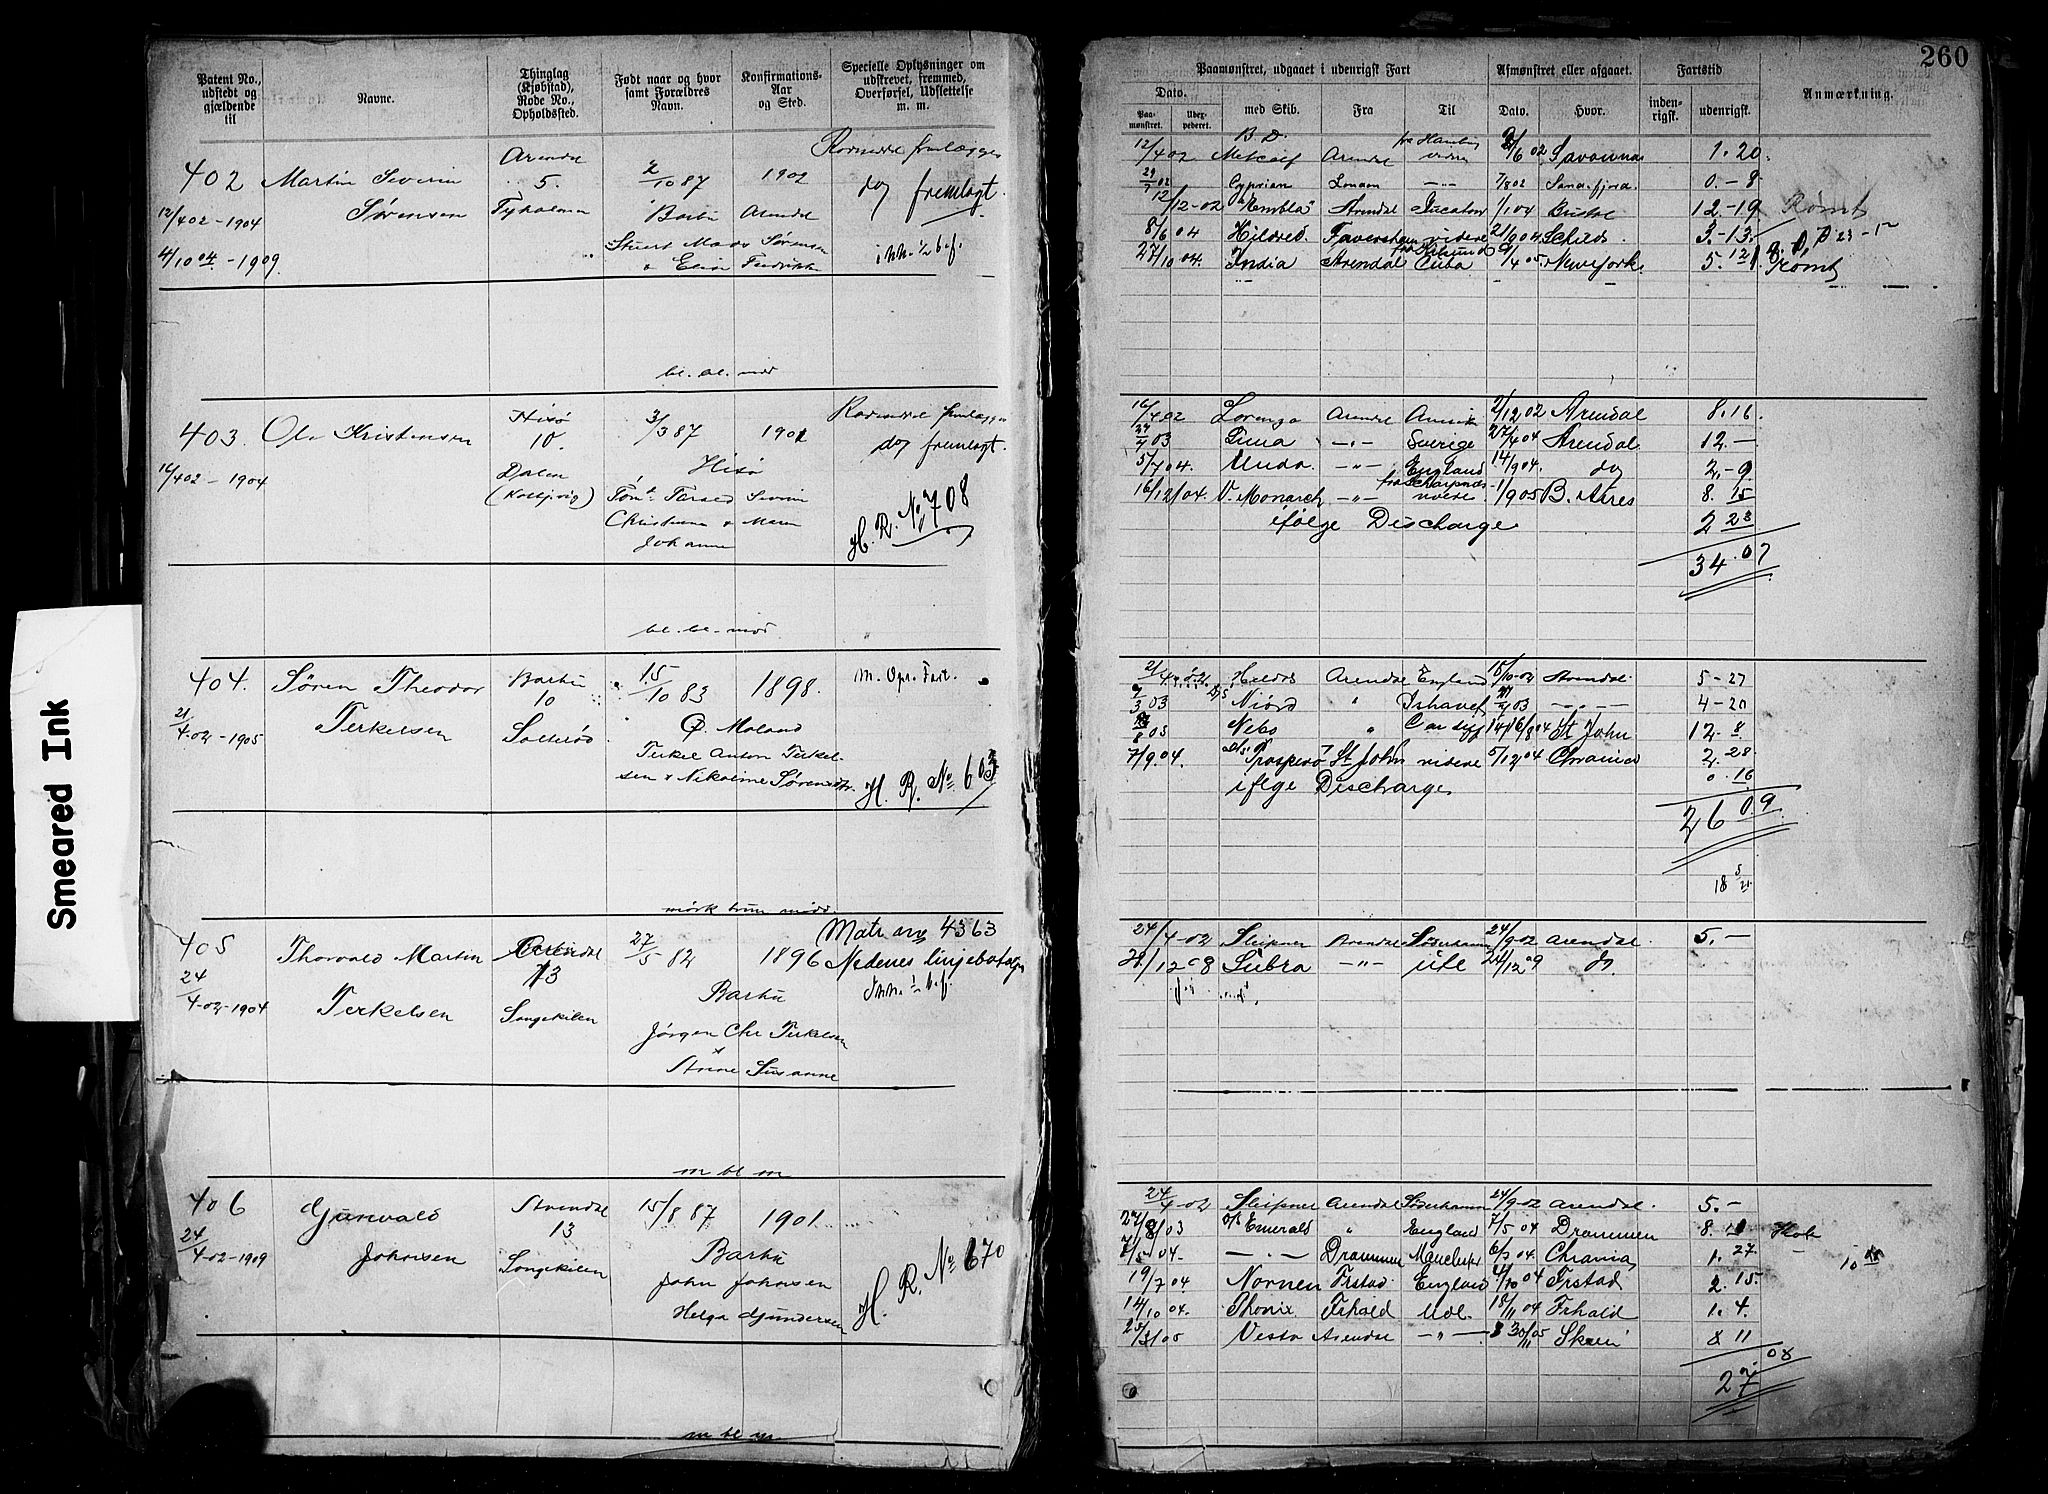 260
Patent No., udstedt og gjældende til
Navne.
Thinglag (Kjøbstad), Rode No., Opholdssted.
Født naar og hvor samt Forældres Navn.
Konfirmations-Aar og Sted.
Specielle Oplysninger om udskrevet, fremmed, Overførsel, Udslettelse m. m.
Paamønstret, udgaaet i udenrigsk Fart
Afmønstret eller afgaaet.
Fartstid
Anmærkning.
Dato.
Paamønstret.
med Skib.
Fra
Til
Dato.
Hvor.
indenrigsk.
udenrigsk.
402
Martin Severin
Sørensen
Arendal
5.
Tyholmen
2/10 87
Barbu
1902
Arendal
dog fremlagt.
12/4 02 - 1904
4/10 04 - 1909
Stuert Mads Sørensen
& Elise Fredrikke
bl. bl. mid
B. D.
12/4 02 Metcalf Arendal 02 Savanna 1. 20.
29/7 02 Cyprian London -"- 7/8 02 Sandefjord. 0. - 8
12/12-02 "Embla" Arendal 1/1 04 12.-19. Rømt
8/6 04 Hildred. Faversham videre 21/9 04 Schields. 3.-13.
27/10 04. India Arendal Cuba /4 05. Newyork 5. 12 Rømt
403.
Ole Kristensen
Hisø
10.
3/3 87
1901
Hisø
dog fremlagt.
16/4 02 - 1904
Dalen
(Kolbjvig)
Tøm. Terjed Severin
Christensen & Maren
Johanne
H. R. No 708
bl. bl. mid
16/4 02 Lorenzo Arendal 2/12 02 Arendal 8. 16
/4 03 -"- Sverige 27/4 04 Arendal 12. -
5/7 04. Unda. -"- England 14/9 04. do 2. - 9.
16/12 04. V. Monarch -"- 1/9 05 B. Aires 8. 15
ifølge Discharge 2 23
34 07
404.
Søren Theodor
Terkelsen
Barbu
10
Solerød
15/10 83
Ø. Moland
1898.
M. Opr. Fart.
21/4-02-1905
Terkel Anton Terkelsen
& Nikoline Sørensdtr.
H. R. No 603
mörk brun midd
21/4-02 Arendal England 15/10-02 Arendal. 5-27
7/3 03 D/S Niörd " Ishavet 03 4-20
Nebo " Cardiff 16/8 04 St John 12. 8
7/9.04. Prospero St John videre 5/12 04 Chrania 2. 28
iflge Discharge 0. 16
26 09
18
405
Thorvald Martin
Terkelsen
Arendal
13
Songekilen
27/5 82
Barbu
1896
Matr arg 4363
Nedenes linjebataljon
24/4-02-1904
Jørgen Chr Terkelsen
&
Anne Susanne
m bl m
24/4-02 Sleipner Arendal Söderhamn 24/9-02 Arendal. 5. -
/12 08 Subra -"- Utl /12 09 do
406
Gunvald
Johnsen
Arendal
13
Songekilen
15/8 87
Barbu
1901.
24/4-02-1909
John Johnsen
Helga Gundersen
H. R. No 670
m bl m
24/4-02 Sleipner Arendal Söderhamn 24/9-02 Arendal. 5. -
27/8 03 Emerald " England 7/5 04 Drammen 8.
7/5 04- -"- Drammen Manchester 6/7 04. Chrania 1. 27
19/7 04. Nornen Frstad. England 4/10 04 Frstad 2. 15.
14/10 04. Phønix Frhald Udl. 18/11 04 Frhald 1. 4.
25/3 05 Vesta Arendal -"- 30/11 05 Skien 8 11
27 08
Smeared Ink